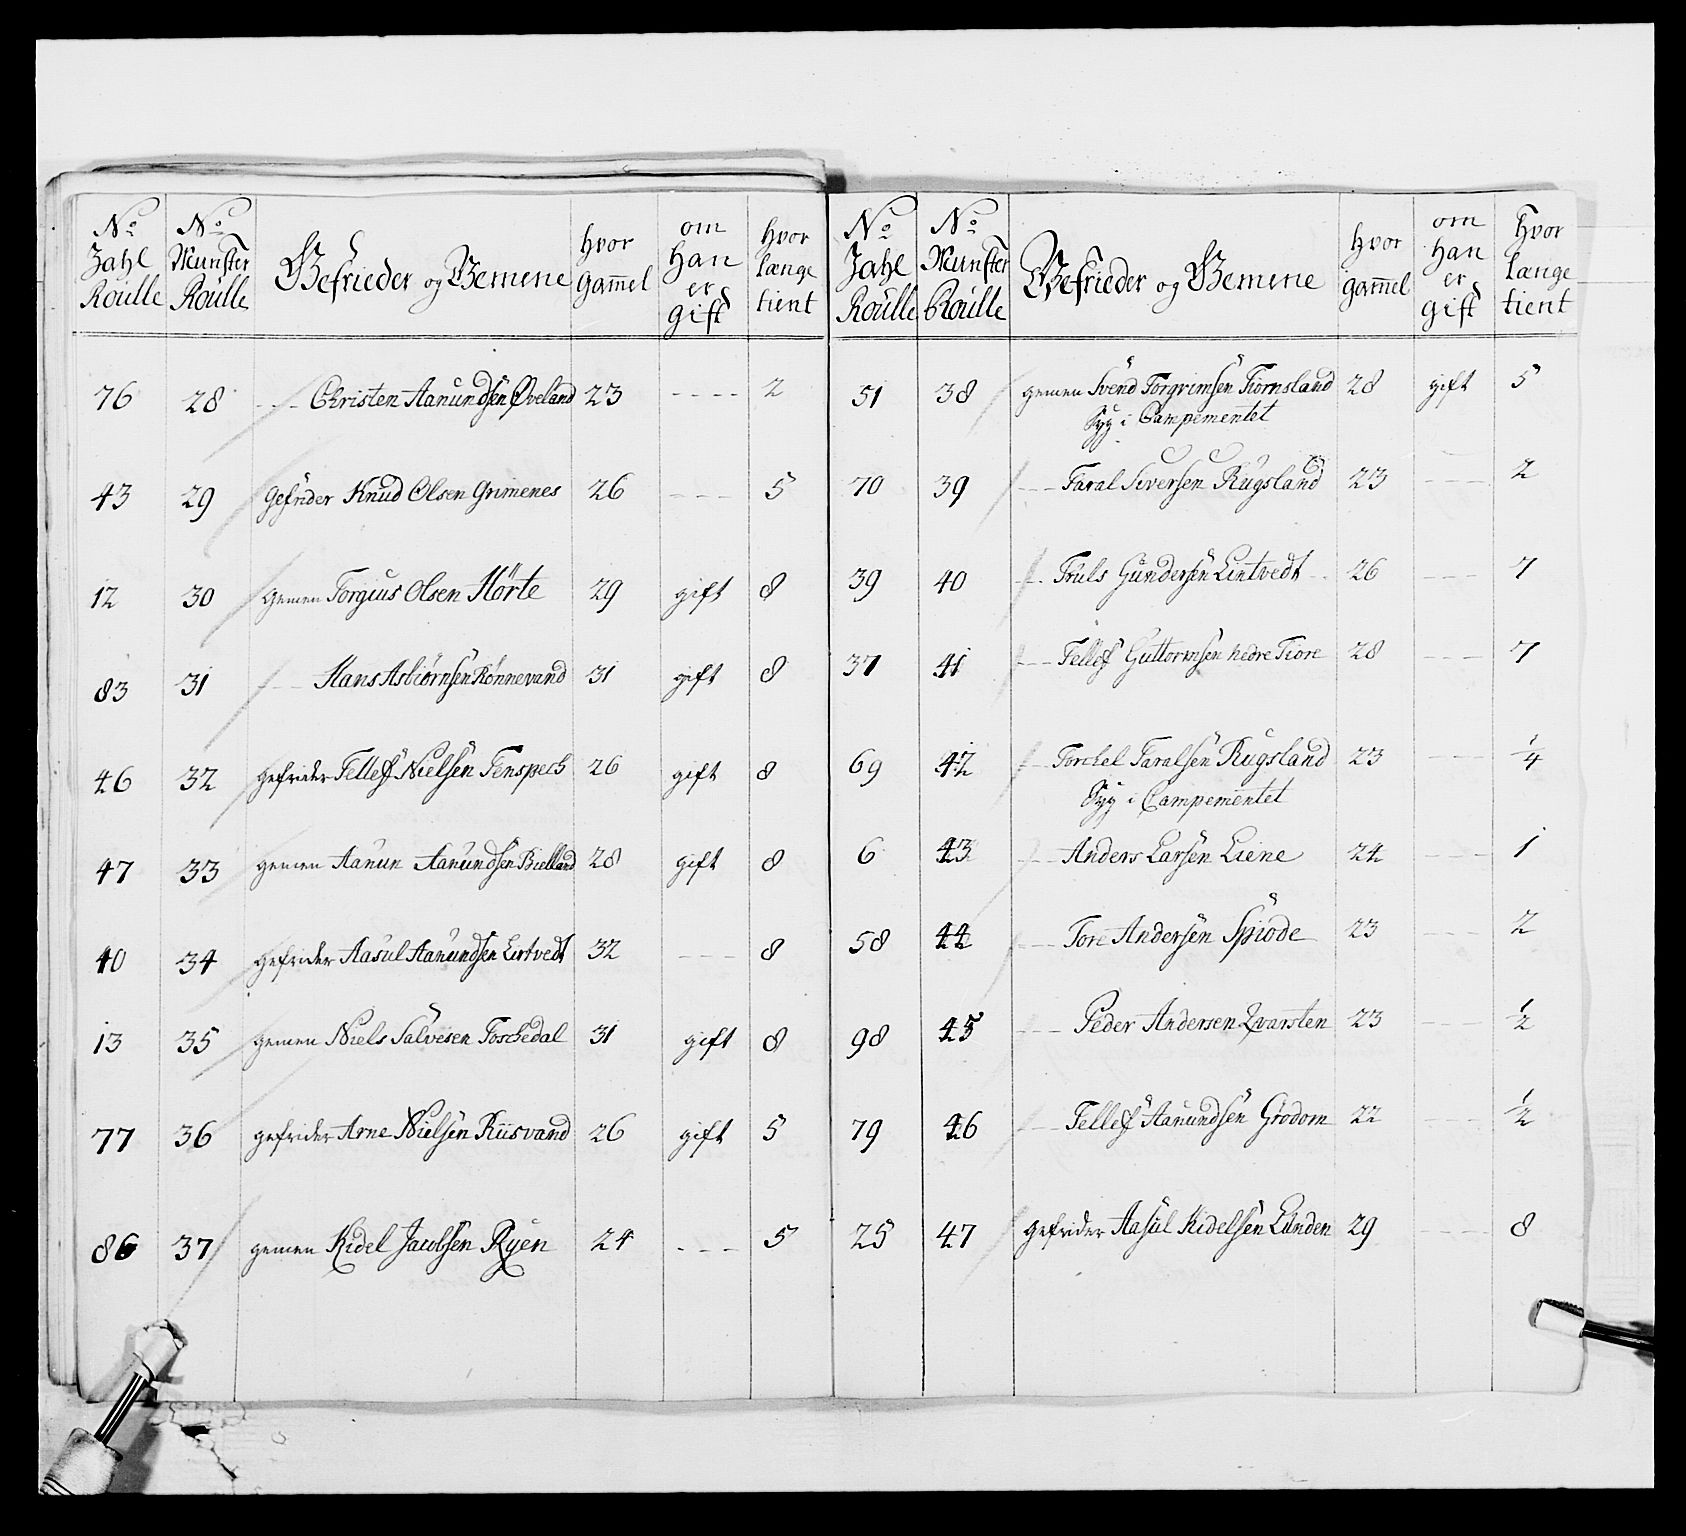 No Zahl Roulle | No Munster Roulle | Gefrieder og Gemene | hvor gam̄el | om Han er gift | hvor længe tient
76 28 --- Christen Aanundsen Øveland 23 ---- 2
43 29 Gefrider Knud Olsen Grimenes 26 ---- 5
12 30 Gemen Torgius Olsen Hörte 29 gift 8
83 31 --- Hans Asbiørnsen Rønnevand 31 gift 8
46 32 gefrider Tellef Nielsen Fenspech 26 gift 8
47 33 gemen Aanun Aanundsen Bielland 28 gift 8
40 34 gefrider Aasul Aanundsen Lintvedt 32 ---- 8
13 35 gemen Niels Salvesen Foschedal 31 gift 8
77 36 gefrider Arne Nielsen Riisvand 26 gift 5
86 37 gemen Kidel Jacobsen Ryen 24 ---- 5
No Zahl Roulle | No Munster Roulle | Gefrieder og Gemene | hvor gam̄el | om Han er gift | hvor længe tient
51 38 gemen Svend Torgrimsen Tiornsland 28 gift 5
Syg i Campementet
70 39 --- Taral Siversen Rugsland 23 ---- 2
39 40 --- Truls Gundersen Lintvedt 26 ---- 7
37 41 --- Tellef Guttormsen nedre Tiore 28 ---- 7
69 42 --- Torckel Taralsen Rugsland 23 ---- 1/4
Syg i Campementet
6 43 --- Anders Larsen Liene 24 ---- 1
58 44 --- Tore Andersen Spiode 23 ---- 2
98 45 --- Peder Andersen Qvarsten 23 ---- 1/2
79 46 --- Tellef Aanundsen Grodom 22 ---- 1/2
25 47 Gefrider Aasul Kidelsen Lunden 29 ---- 8